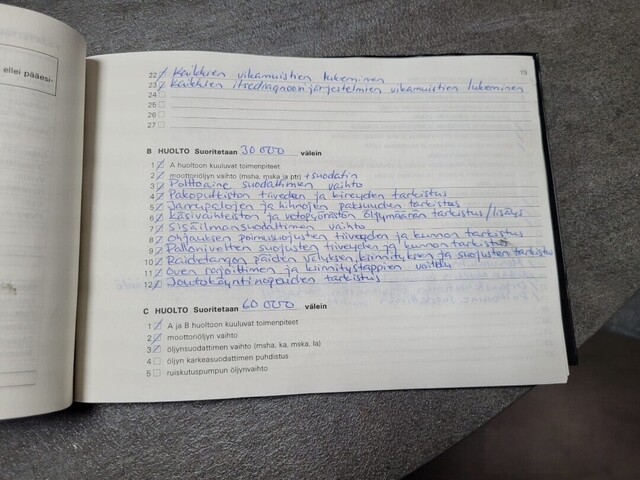 ellei pääesi-
19
22 Kaikkien vikamuistien lukeminen
23 Kaikkien itsediagnoosijärjestelmien vikamuistien lukeminen
24
25
26
27
B HUOLTO Suoritetaan 30 000 välein
1 A huoltoon kuuluvat toimenpiteet
2 moottoriöljyn vaihto (msha, mska ja ptr) + suodatin
3 Polttoaine suodattimen vaihto
4 Pakoputkiston tiiveyden ja kireyden tarkistus
5 Jarrupalojen ja hihnojen paksuuden tarkistus
6 Käsivaihteiston ja vetopyörästön öljymäärän tarkistus/lisäys
7 Sisäilmansuodattimen vaihto
8 Ohjauksen poimusuojusten tiiveyden ja kunnon tarkistus
9 Pallonivelten suojusten tiiveyden ja kunnon tarkistus
10 Raidetangon päiden välyksen, kiinnityksen ja suojusten tarkistus
11 Oven rajoittimen ja kiinnitystappien voitelu
12 Joutokäyntinopeuden tarkistus
C HUOLTO Suoritetaan 60 000 välein
1 A ja B huoltoon kuuluvat toimenpiteet
2 moottoriöljyn vaihto
3 öljynsuodattimen vaihto (msha, ka, mska, la)
4 öljyn karkeasuodattimen puhdistus
5 ruiskutuspumpun öljynvaihto